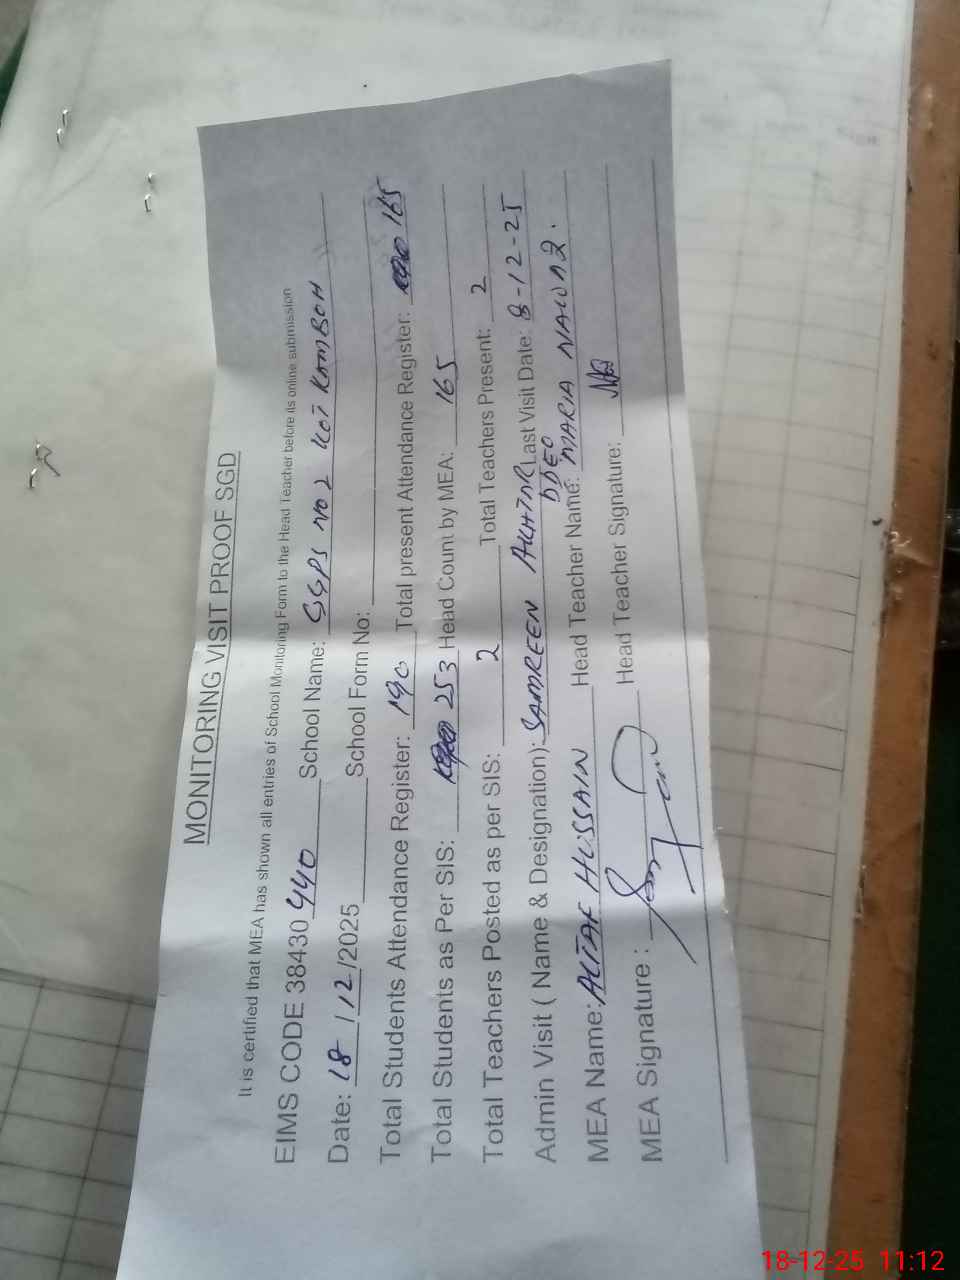 MONITORING VISIT PROOF SGD
It is certified that MEA has shown all entries of School Monitoring Form to the Head Teacher before its online submission
EIMS CODE 38430 440 School Name: GGPS NO 2 KOT KAMBOH
Date: 18 / 12 /2025 School Form No:
Total Students Attendance Register: 190 Total present Attendance Register: 165
Total Students as Per SIS: 253 Head Count by MEA: 165
Total Teachers Posted as per SIS: 2 Total Teachers Present: 2
Admin Visit ( Name & Designation): SAMREEN AKHTAR DDEO Last Visit Date: 8-12-25
MEA Name: ALTAF HUSSAIN Head Teacher Name: MARIA NAWAZ.
MEA Signature : Head Teacher Signature:
18-12-25 11:12